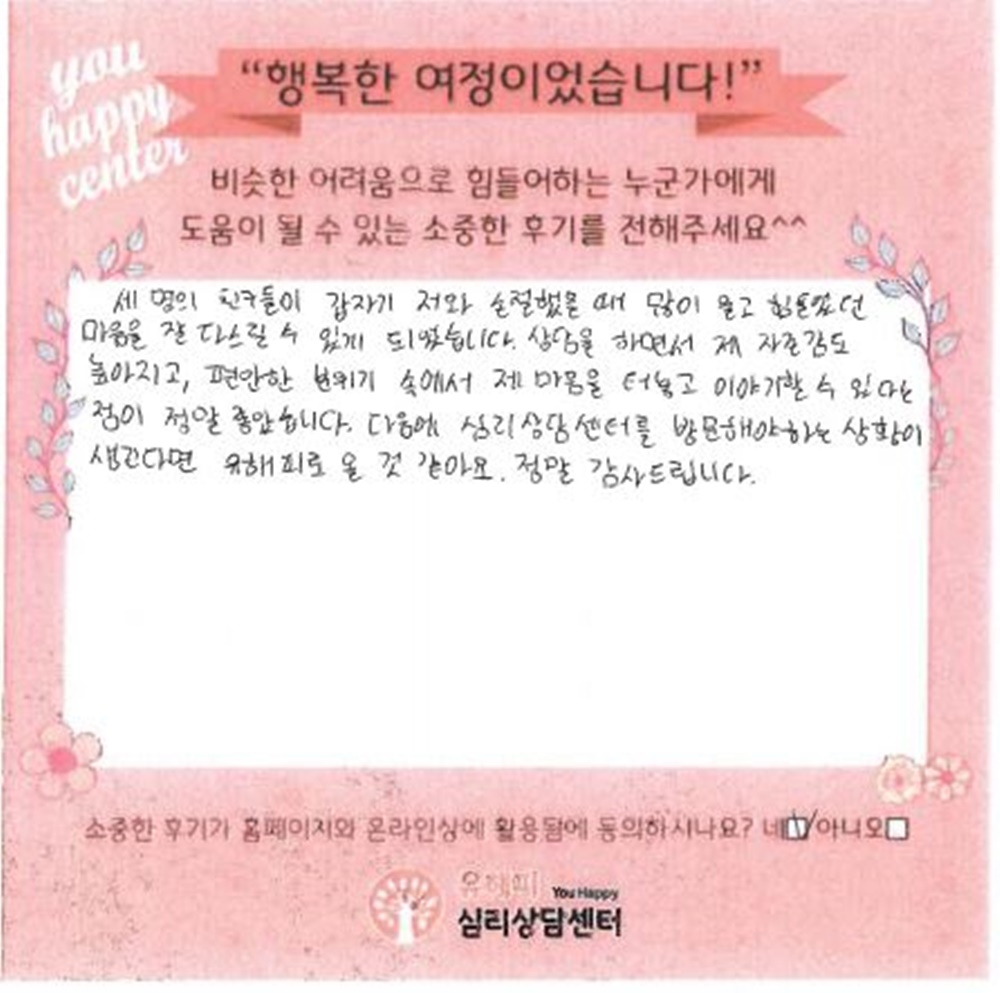 you
happy
center
“행복한 여정이었습니다!”
비슷한 어려움으로 힘들어하는 누군가에게
도움이 될 수 있는 소중한 후기를 전해주세요^^
세 명의 친구들이 갑자기 저와 손절했을 때 많이 울고 힘들었던
마음을 잘 다스릴 수 있게 되었습니다. 상담을 하면서 제 자존감도
높아지고, 편안한 분위기 속에서 제 마음을 터놓고 이야기할 수 있다는
점이 정말 좋았습니다. 다음에 심리상담센터를 방문해야하는 상황이
생긴다면 유해피로 올 것 같아요. 정말 감사드립니다.
소중한 후기가 홈페이지와 온라인상에 활용됨에 동의하시나요? 네 아니오
유해피 You Happy
심리상담센터